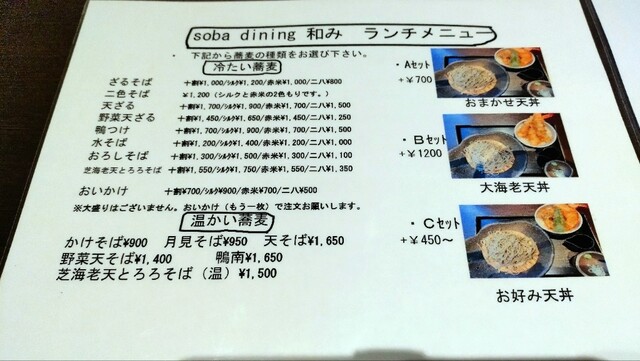 soba dining 和み ランチメニュー
・ 下記から蕎麦の種類をお選び下さい。
冷たい蕎麦
ざるそば 十割¥1,000/シルク¥1,200/赤米¥1,000/二八¥800
二色そば ¥1,200(シルクと赤米の2色もりです。)
天ざる 十割¥1,700/シルク¥1,900/赤米¥1,700/二八¥1,500
野菜天ざる 十割¥1,450/シルク¥1,650/赤米¥1,450/二八¥1,250
鴨つけ 十割¥1,700/シルク¥1,900/赤米¥1,700/二八¥1,500
水そば 十割¥1,200/シルク¥1,400/赤米¥1,200/二八¥1,000
おろしそば 十割¥1,300/シルク¥1,500/赤米¥1,300/二八¥1,100
芝海老天とろろそば 十割¥1,550/シルク¥1,750/赤米¥1,550/二八¥1,350
おいかけ 十割¥700/シルク¥900/赤米¥700/二八¥500
※大盛りはございません。おいかけ(もう一枚)で注文お願いします。
温かい蕎麦
かけそば¥900 月見そば¥950 天そば¥1,650
野菜天そば¥1,400 鴨南¥1,650
芝海老天とろろそば(温)¥1,500
・Aセット
+¥700
おまかせ天丼
・Bセット
+¥1200
大海老天丼
・Cセット
+¥450～
お好み天丼